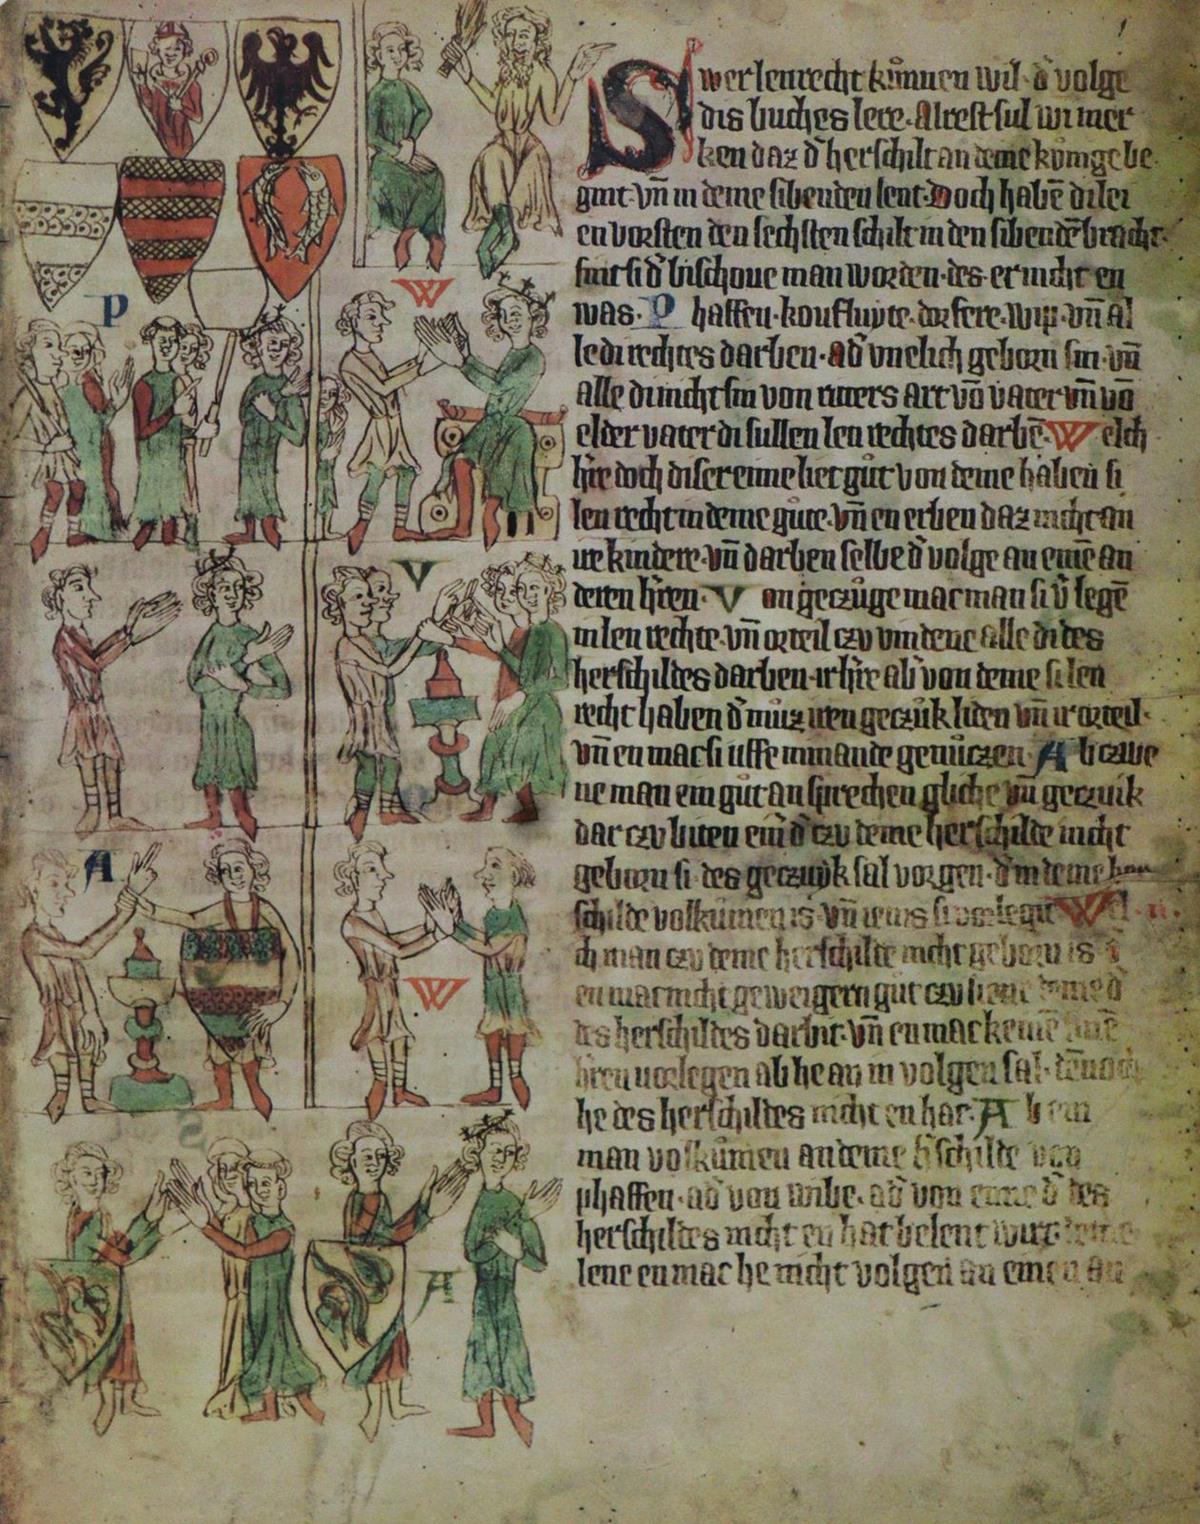 P
W
V
A
W
A
Swer lenrecht kůnnen wil · d' volge
dis buches lere · Alrest sul wi mer
ken daz d' herschilt an deme kůnige be
gint · vn̄ in deme sibenden lent · Doch habē di lei
en vorsten den sechsten schilt in den sibendē bracht ·
sint si d' bischoue man worden · des · er nicht en
was · Phaffen · koufluyte · dorfere · wip · vn̄ al
le di rechtes darben · ad' vnelich geborn sin · vn̄
alle di nicht sin von ritters art vō vater vn̄ vō
elder vater di sullen len rechtes darbē · Welch
h're doch diser eime liet gůt von deme haben si
len recht in deme gůte · vn̄ en erben daz nicht an
ire kindere · vn̄ darben selbe d' volge an eime an
deren h'ren · Von geczůge mac man si v'legē
in len rechte · vn̄ orteil czu vindene alle di des
herschildes darben · ir h're ab' von deme si len
recht haben d' můz iren geczůk liden vn̄ ir orteil ·
vn̄ en mac si uffe nimande genůczen · Ab czwe
ne man ein gůt an sprechen gliche vn̄ geczuik
dar czu biten ein d' czu deme herschilde nicht
geborn si · des geczuyk sal vorgen · d' in deme her
schilde volkůmen is · vn̄ ienis si vorlegit Wel
ch man czu deme herschilde nicht geborn is
en mac nicht geweigern gůt czu liene deme d'
des herschildes darbit · vn̄ en mac keinē sinē
h'ren vorlegen ab he an in volgen sal · dēnoch
he des herschildes nicht en hat · Ab ein
man volkůmen an deme h'schilde von
phaffen · ad' von wibe · ad' von eime d' des
herschildes nicht en hat belent wirt · deme
lene en mac he nicht volgen an einen an